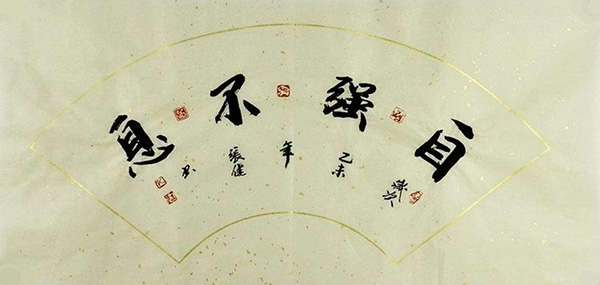 自强不息
乙未
年
張健
书